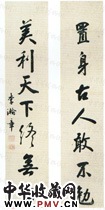 置身古人敢不勉
美利天下終無
李瀚章
中华收藏网
WWW.PMV.CN